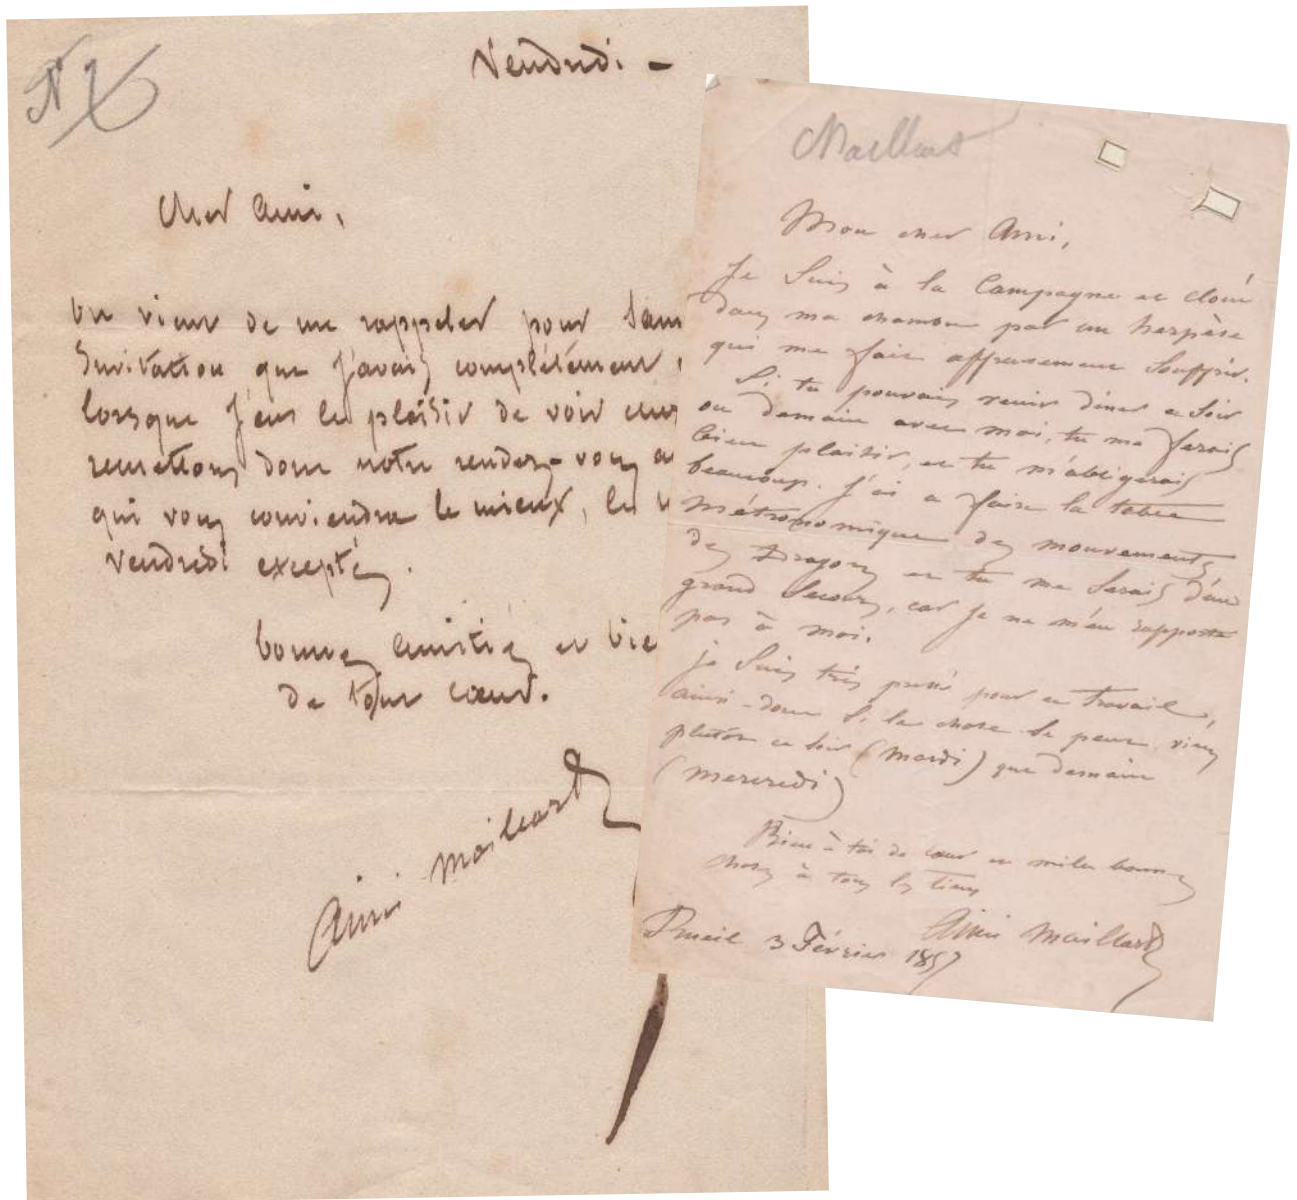 Vendredi -
cher ami,
on vient de me rappeler pour Sam
Invitation que j'avais complètement
lorsque j'eus le plaisir de voir
remettons donc notre rendez-vous a
qui vous conviendra le mieux, le
vendredi exceptés.
bonnes amitiés et bie
de tout cœur.
aimé maillart
Maillart
Mon cher Ami,
Je suis à la Campagne et cloué
dans ma chambre par un herpèse
qui me fait affreusement souffrir.
Si tu pouvais venir diner ce soir
ou demain avec moi, tu me ferais
bien plaisir, et tu m'obligerais
beaucoup. J'ai a faire la table
métronomique des mouvements
des Dragons et tu me serais d'un
grand secours, car je ne m'en rapporte
pas à moi.
je suis très pressé pour ce travail,
ainsi-donc si la chose se peut, viens
plutôt ce soir (mardi) que demain
(mercredi)
Bien à toi de cœur et milles bonnes
choses à tous les tiens
Aimé Maillart
Rueil 3 Février 1857